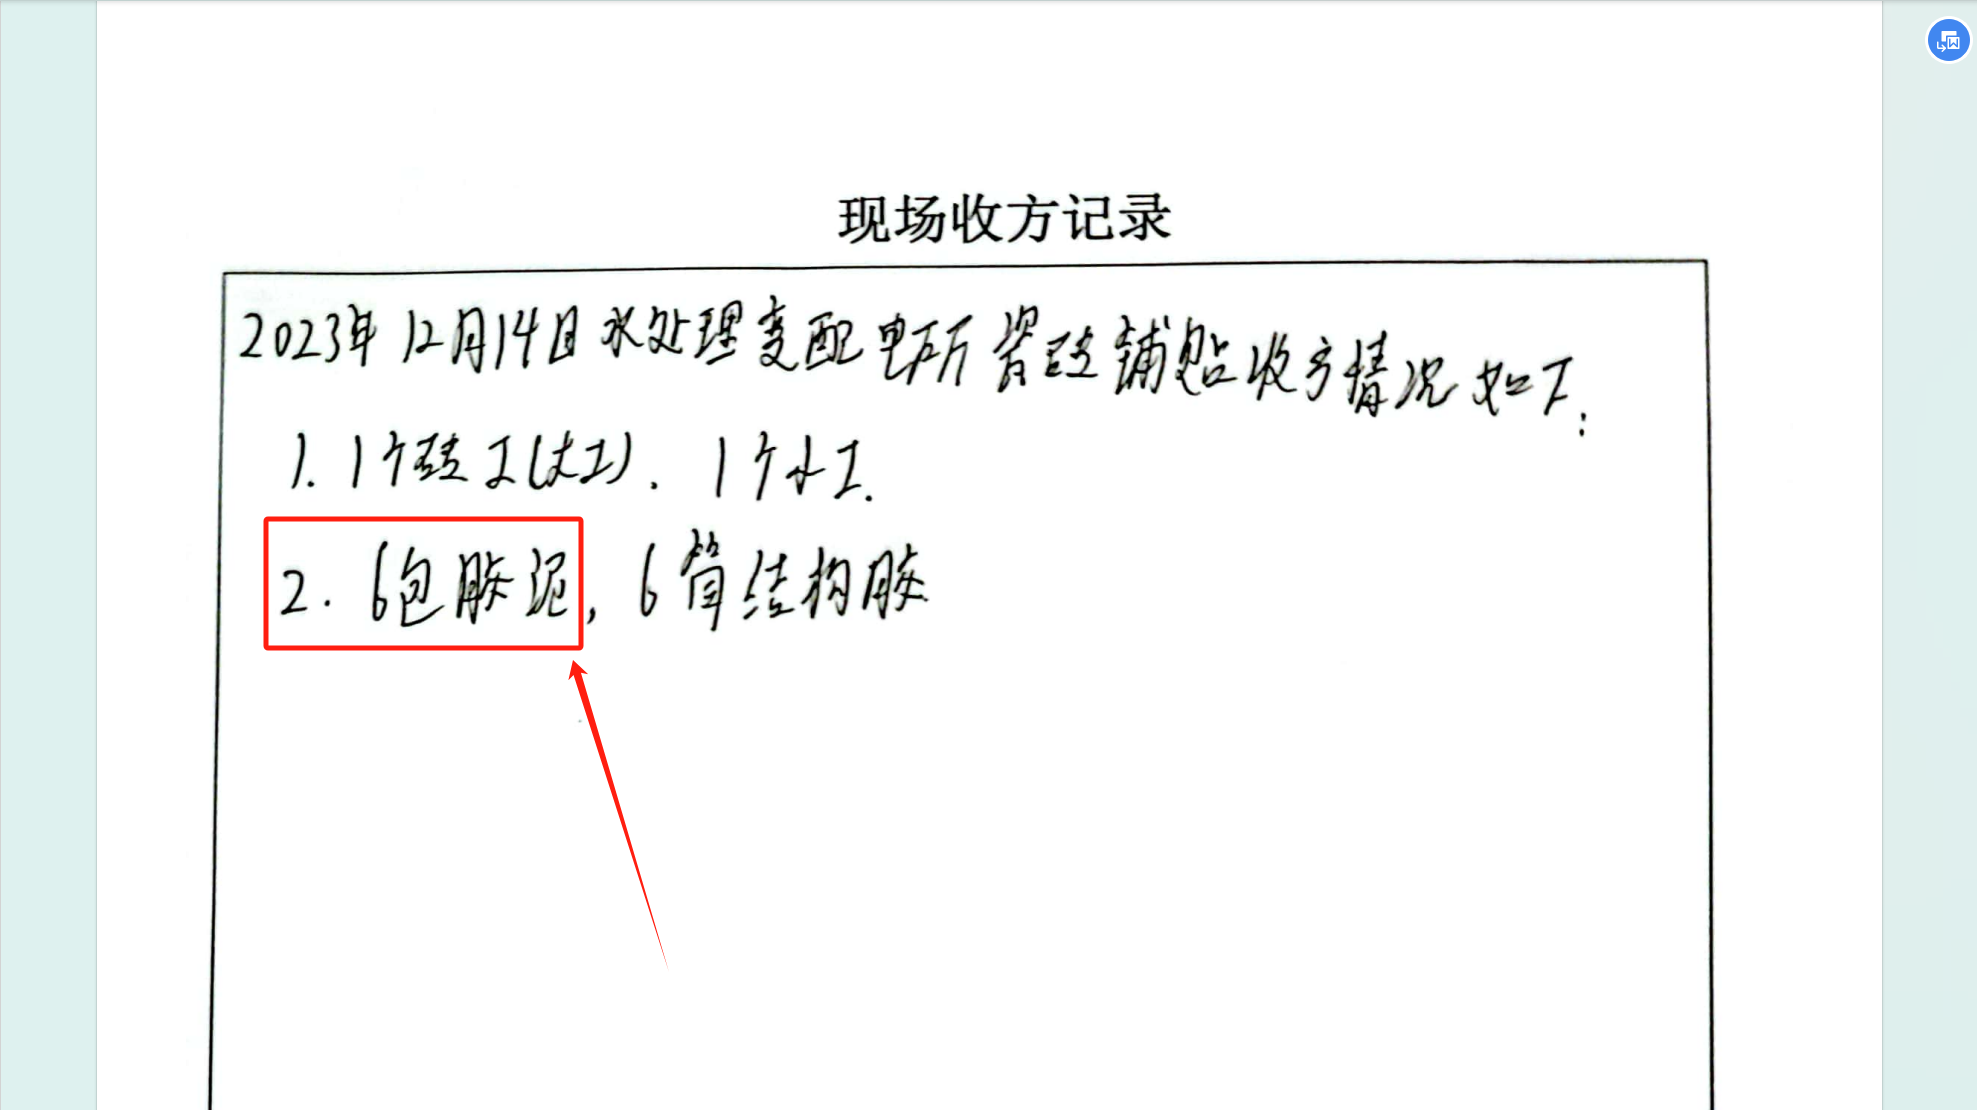 现场收方记录
2023年12月14日水处理变配电所瓷砖铺贴收方情况如下:
1. 1个砖工(大工). 1个小工.
2. 6包胶泥, 6筒结构胶